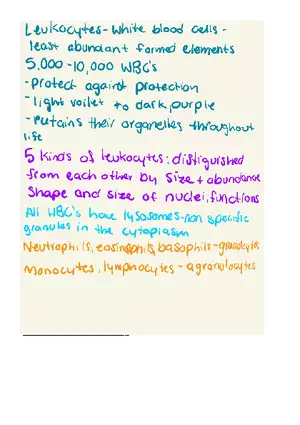 Leukocytes - White blood cells -
least abundant formed elements
5,000 - 10,000 WBC's
- protect against protection
- light voilet to dark purple
- retains their organelles throughout
life
5 kinds of leukocytes: distiguished
from each other by size + abundance
Shape and size of nuclei, functions
All WBC's have lysosomes - non specific
granules in the cytoplasm
Neutrophils, eosinophils, basophils - granulocytes
Monocytes, lymphocytes - agranulocytes